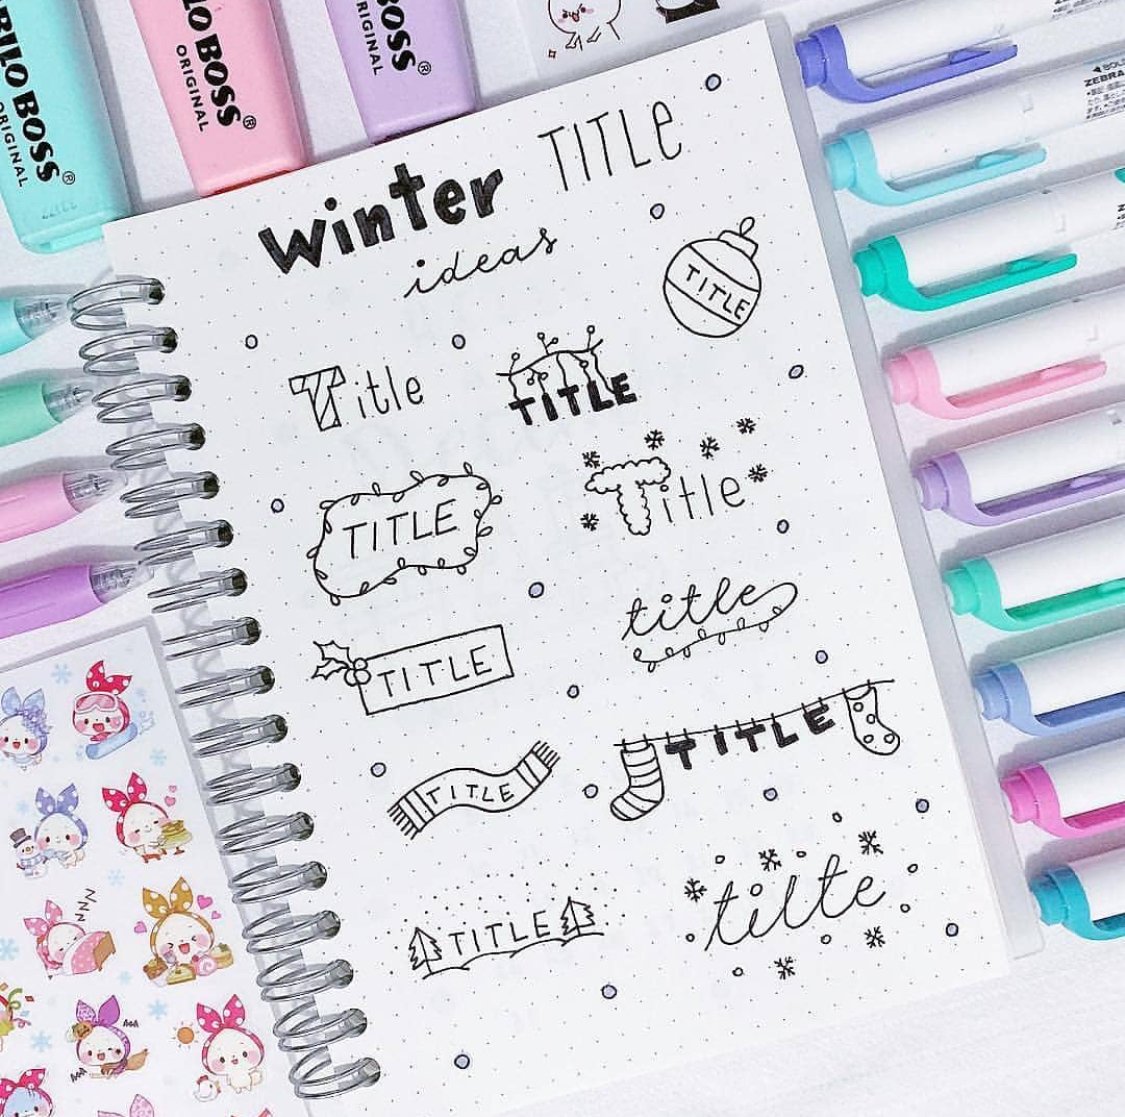 BILO BOSS®
ORIGINAL
LO BOSS®
ORIGINAL
BOSS®
ORIGINAL
ZEBRA
Winter TITLE
ideas
TITLE
Title
TITLE
TITLE
Title
TITLE
title
TITLE
TITLE
TITLE
tilte
zzz